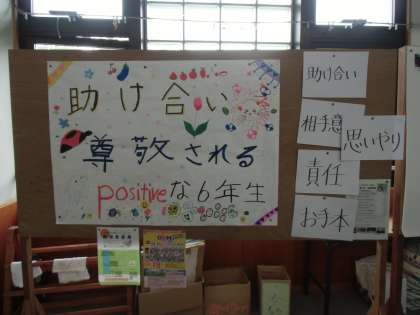 助け合い
尊敬される
positiveな6年生
助け合い
相手意
思いやり
責任
お手本